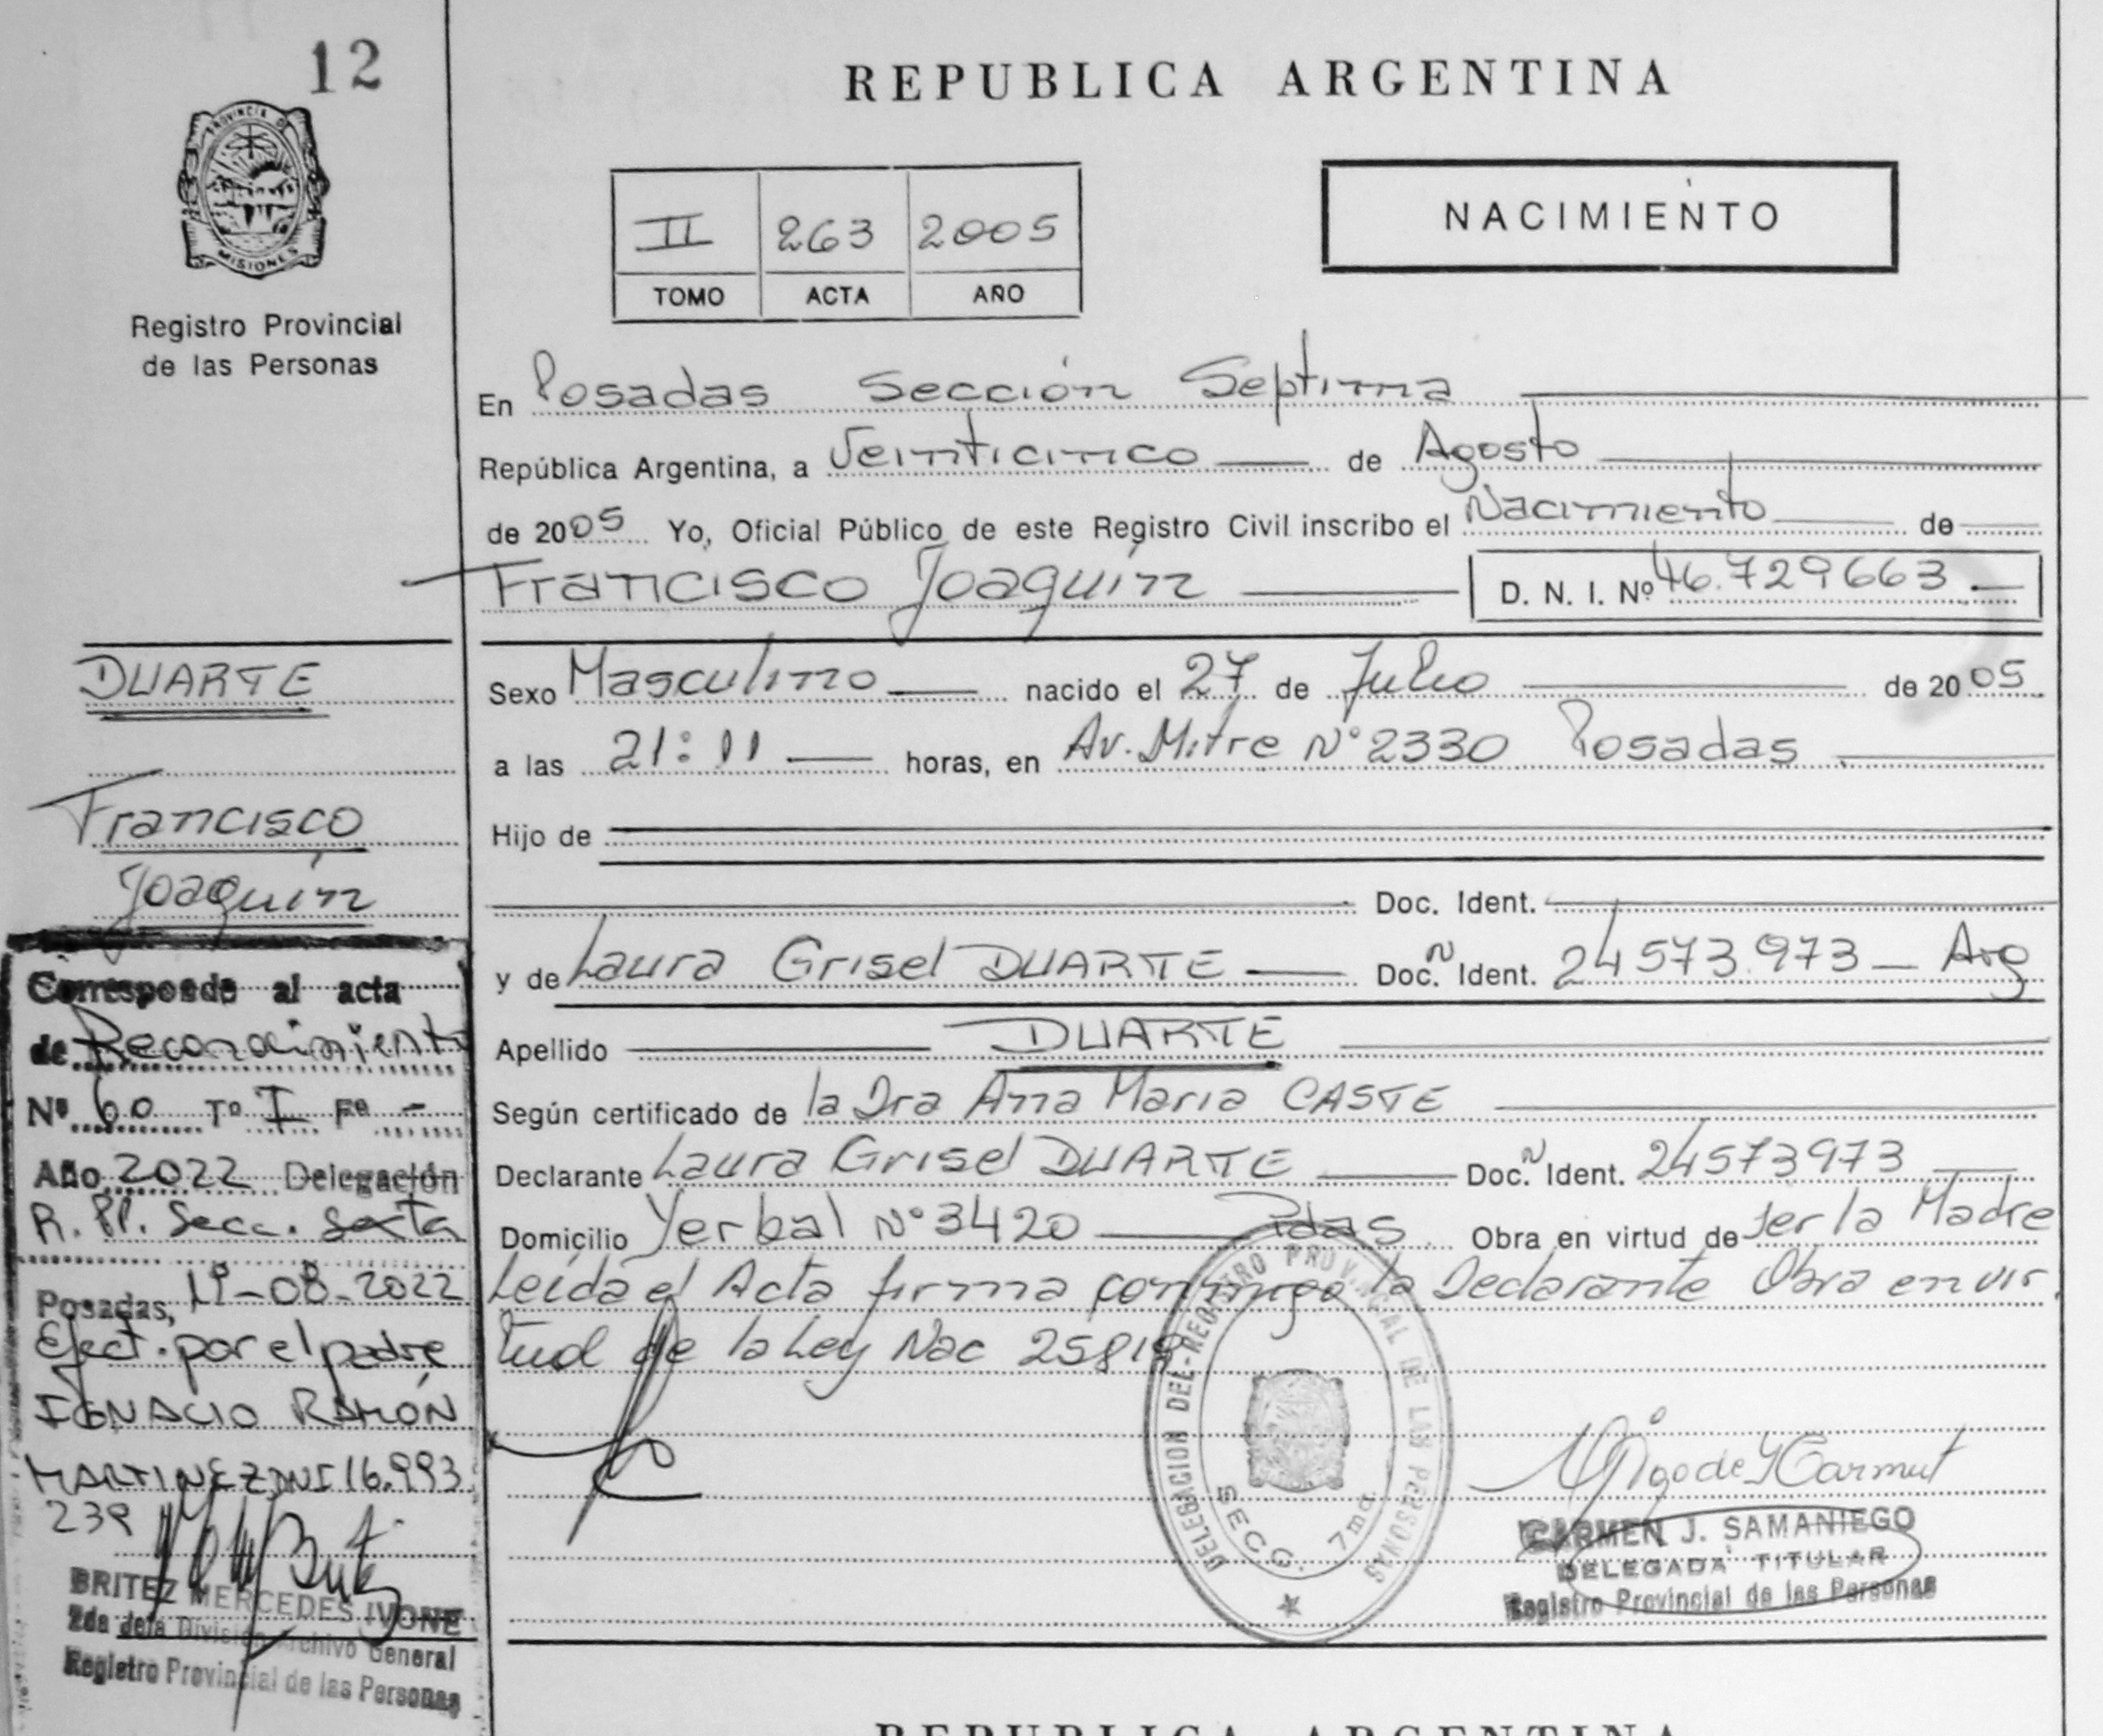 12
PROVINCIA DE
MISIONES
Registro Provincial
de las Personas
REPUBLICA ARGENTINA
II 263 2005
TOMO ACTA AÑO
NACIMIENTO
En Posadas Sección Septima
República Argentina, a Veinticinco de Agosto
de 2005 Yo, Oficial Público de este Registro Civil inscribo el Nacimiento de
Francisco Joaquín D. N. I. Nº 46.729663
DUARTE
Francisco
Joaquín
Sexo Masculino nacido el 27 de Julio de 2005
a las 21:11 horas, en Av. Mitre Nº 2330 Posadas
Hijo de
Doc. Ident.
y de Laura Grisel DUARTE Doc. N Ident. 24573.973 Arg
Apellido DUARTE
Según certificado de la Dra Ana Maria CASTE
Declarante Laura Grisel DUARTE Doc. N Ident. 24573973
Domicilio Yerbal Nº 3420 Pdas Obra en virtud de ser la Madre
Leida el Acta firma conmigo la Declarante Obra en vir
tud de la Ley Nac 25819
Corresponde al acta
de Reconocimiento
Nº 60 Tº I Fº -
Año 2022 Delegación
R. Pl. Secc. Sexta
Posadas, -08-2022
Efect. por el padre
IGNACIO RAMÓN
MARTINEZ DNI 16.993.
239
BRITEZ MERCEDES IVONE
2da Jefa División Archivo General
Registro Provincial de las Personas
DELEGACION DEL REGISTRO PROVINCIAL DE LAS PERSONAS
SECC. 7ma.
CARMEN J. SAMANIEGO
DELEGADA TITULAR
Registro Provincial de las Personas
REPUBLICA ARGENTINA